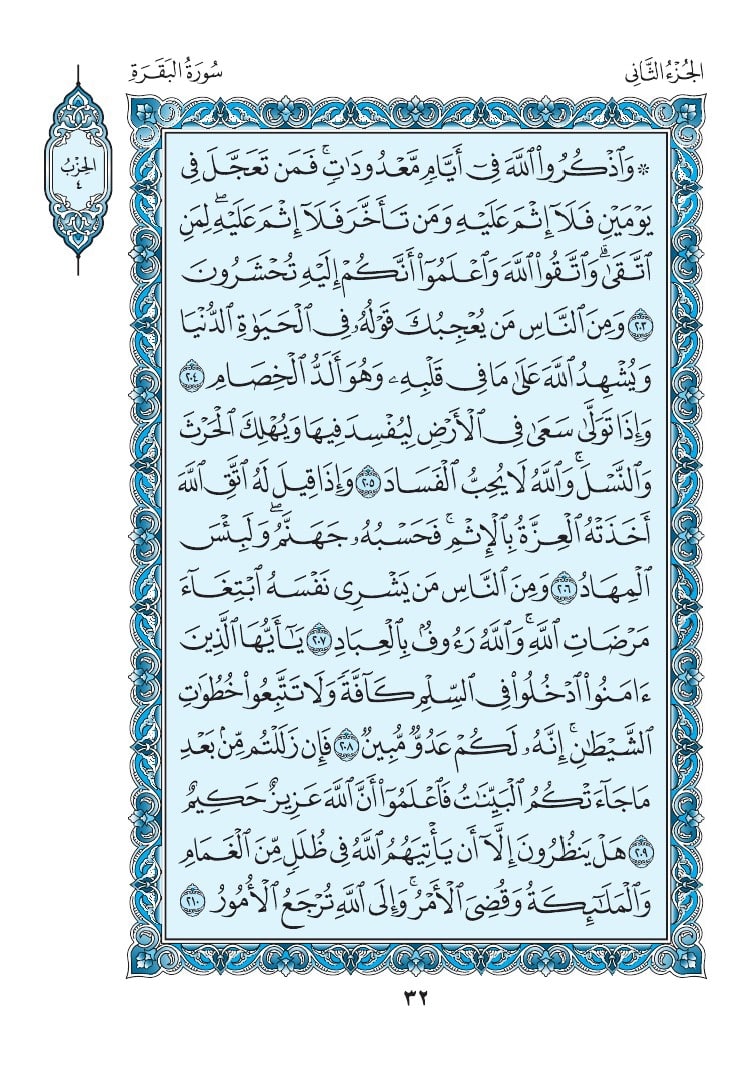 الجُزْءُ الثَّانِي
سُورَةُ البَقَرَةِ
الحِزْبُ
٤
۞ وَٱذْكُرُوا۟ ٱللَّهَ فِىٓ أَيَّامٍ مَّعْدُودَٰتٍ ۚ فَمَن تَعَجَّلَ فِى
يَوْمَيْنِ فَلَآ إِثْمَ عَلَيْهِ وَمَن تَأَخَّرَ فَلَآ إِثْمَ عَلَيْهِ ۖ لِمَنِ
ٱتَّقَىٰ ۗ وَٱتَّقُوا۟ ٱللَّهَ وَٱعْلَمُوٓا۟ أَنَّكُمْ إِلَيْهِ تُحْشَرُونَ
٢٠٣ وَمِنَ ٱلنَّاسِ مَن يُعْجِبُكَ قَوْلُهُۥ فِى ٱلْحَيَوٰةِ ٱلدُّنْيَا
وَيُشْهِدُ ٱللَّهَ عَلَىٰ مَا فِى قَلْبِهِۦ وَهُوَ أَلَدُّ ٱلْخِصَامِ ٢٠٤
وَإِذَا تَوَلَّىٰ سَعَىٰ فِى ٱلْأَرْضِ لِيُفْسِدَ فِيهَا وَيُهْلِكَ ٱلْحَرْثَ
وَٱلنَّسْلَ ۚ وَٱللَّهُ لَا يُحِبُّ ٱلْفَسَادَ ٢٠٥ وَإِذَا قِيلَ لَهُ ٱتَّقِ ٱللَّهَ
أَخَذَتْهُ ٱلْعِزَّةُ بِٱلْإِثْمِ ۚ فَحَسْبُهُۥ جَهَنَّمُ ۖ وَلَبِئْسَ
ٱلْمِهَادُ ٢٠٦ وَمِنَ ٱلنَّاسِ مَن يَشْرِى نَفْسَهُ ٱبْتِغَآءَ
مَرْضَاتِ ٱللَّهِ ۚ وَٱللَّهُ رَءُوفٌۢ بِٱلْعِبَادِ ٢٠٧ يَٰٓأَيُّهَا ٱلَّذِينَ
ءَامَنُوا۟ ٱدْخُلُوا۟ فِى ٱلسِّلْمِ كَآفَّةً وَلَا تَتَّبِعُوا۟ خُطُوَٰتِ
ٱلشَّيْطَٰنِ ۚ إِنَّهُۥ لَكُمْ عَدُوٌّ مُّبِينٌ ٢٠٨ فَإِن زَلَلْتُم مِّنۢ بَعْدِ
مَا جَآءَتْكُمُ ٱلْبَيِّنَٰتُ فَٱعْلَمُوٓا۟ أَنَّ ٱللَّهَ عَزِيزٌ حَكِيمٌ
٢٠٩ هَلْ يَنظُرُونَ إِلَّآ أَن يَأْتِيَهُمُ ٱللَّهُ فِى ظُلَلٍ مِّنَ ٱلْغَمَامِ
وَٱلْمَلَٰٓئِكَةُ وَقُضِىَ ٱلْأَمْرُ ۚ وَإِلَى ٱللَّهِ تُرْجَعُ ٱلْأُمُورُ ٢١٠
٣٢